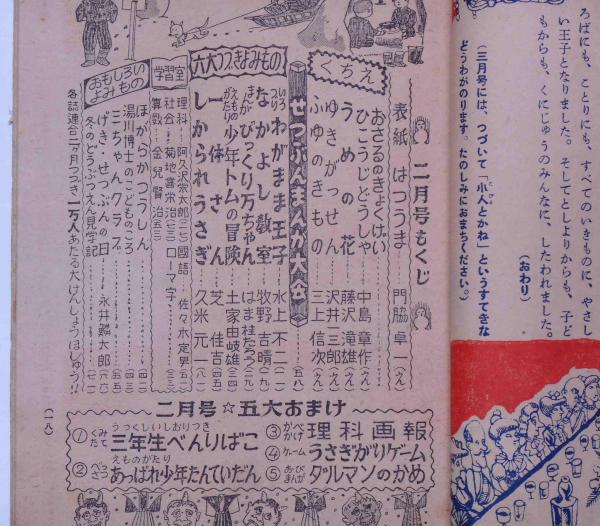 ろばにも、ことりにも、すべてのいきものに、やさし
い王子となりました。そしてとしよりからも、子ど
もからも、くにじゅうのみんなに、したわれました。
(おわり)
(三月号には、つづいて「小人とかね」というすてきな
どうわがのります。たのしみにおまちください。)
二月号もくじ
表紙 はつうま 門脇卓一(え)
くちえ
おさるのきょくげい
ひこうじどうしゃ 中島章作(え)
うめの花 藤沢滝雄(え)
ゆきがっせん 沢井三郎(え)
ふゆのきもの 三上信次(え)
せつぶんまんが大会 (五八)
六大つづきよみもの
いろつり わがまま王子 水上不二(二)
なかよし教室 牧野吉晴(一九)
まんが びっくり万ちゃん はま桂たろう
えものがたり 少年トムの冒険 土家由岐雄(三四)
一休さん 芝佳吉
しかられうさぎ 久米元一
学習室
理科 阿久沢栄太郎
国語 佐々木定男
社会 菊地喜栄治
ローマ字
算数 金児賢治
おもしろいよみもの
ほがらかつうしん
湯川博士のこどものころ
三ちゃんクラブ
げき・せつぶんの日 永井鱗太郎(六六)
冬のどうぶつえん見学記
各誌連合二ヶ月つづき一万人あたる大けんしょうはっしゅう!!
(一八)
二月号☆五大おまけ
① くみたて うつくしいしおりつき 三年生べんりばこ
② べっさつ えものがたり あっぱれ少年たんていだん
③ かべかけ 理科画報
④ ゲーム うさぎがりゲーム
⑤ おびまんが ダルマソのかめ